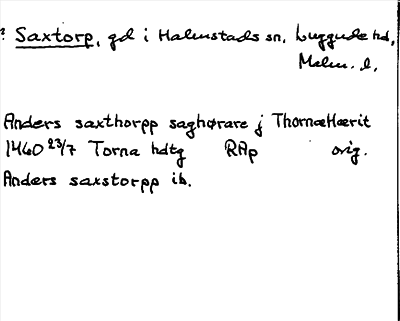 ? Saxtorp, gd i Halmstads sn, Luggude hd,
Malm. l.
Anders saxthorpp saghørare j ThornæHærit
1460 23/7 Torna hdtg RAp orig.
Anders saxstorpp ib.